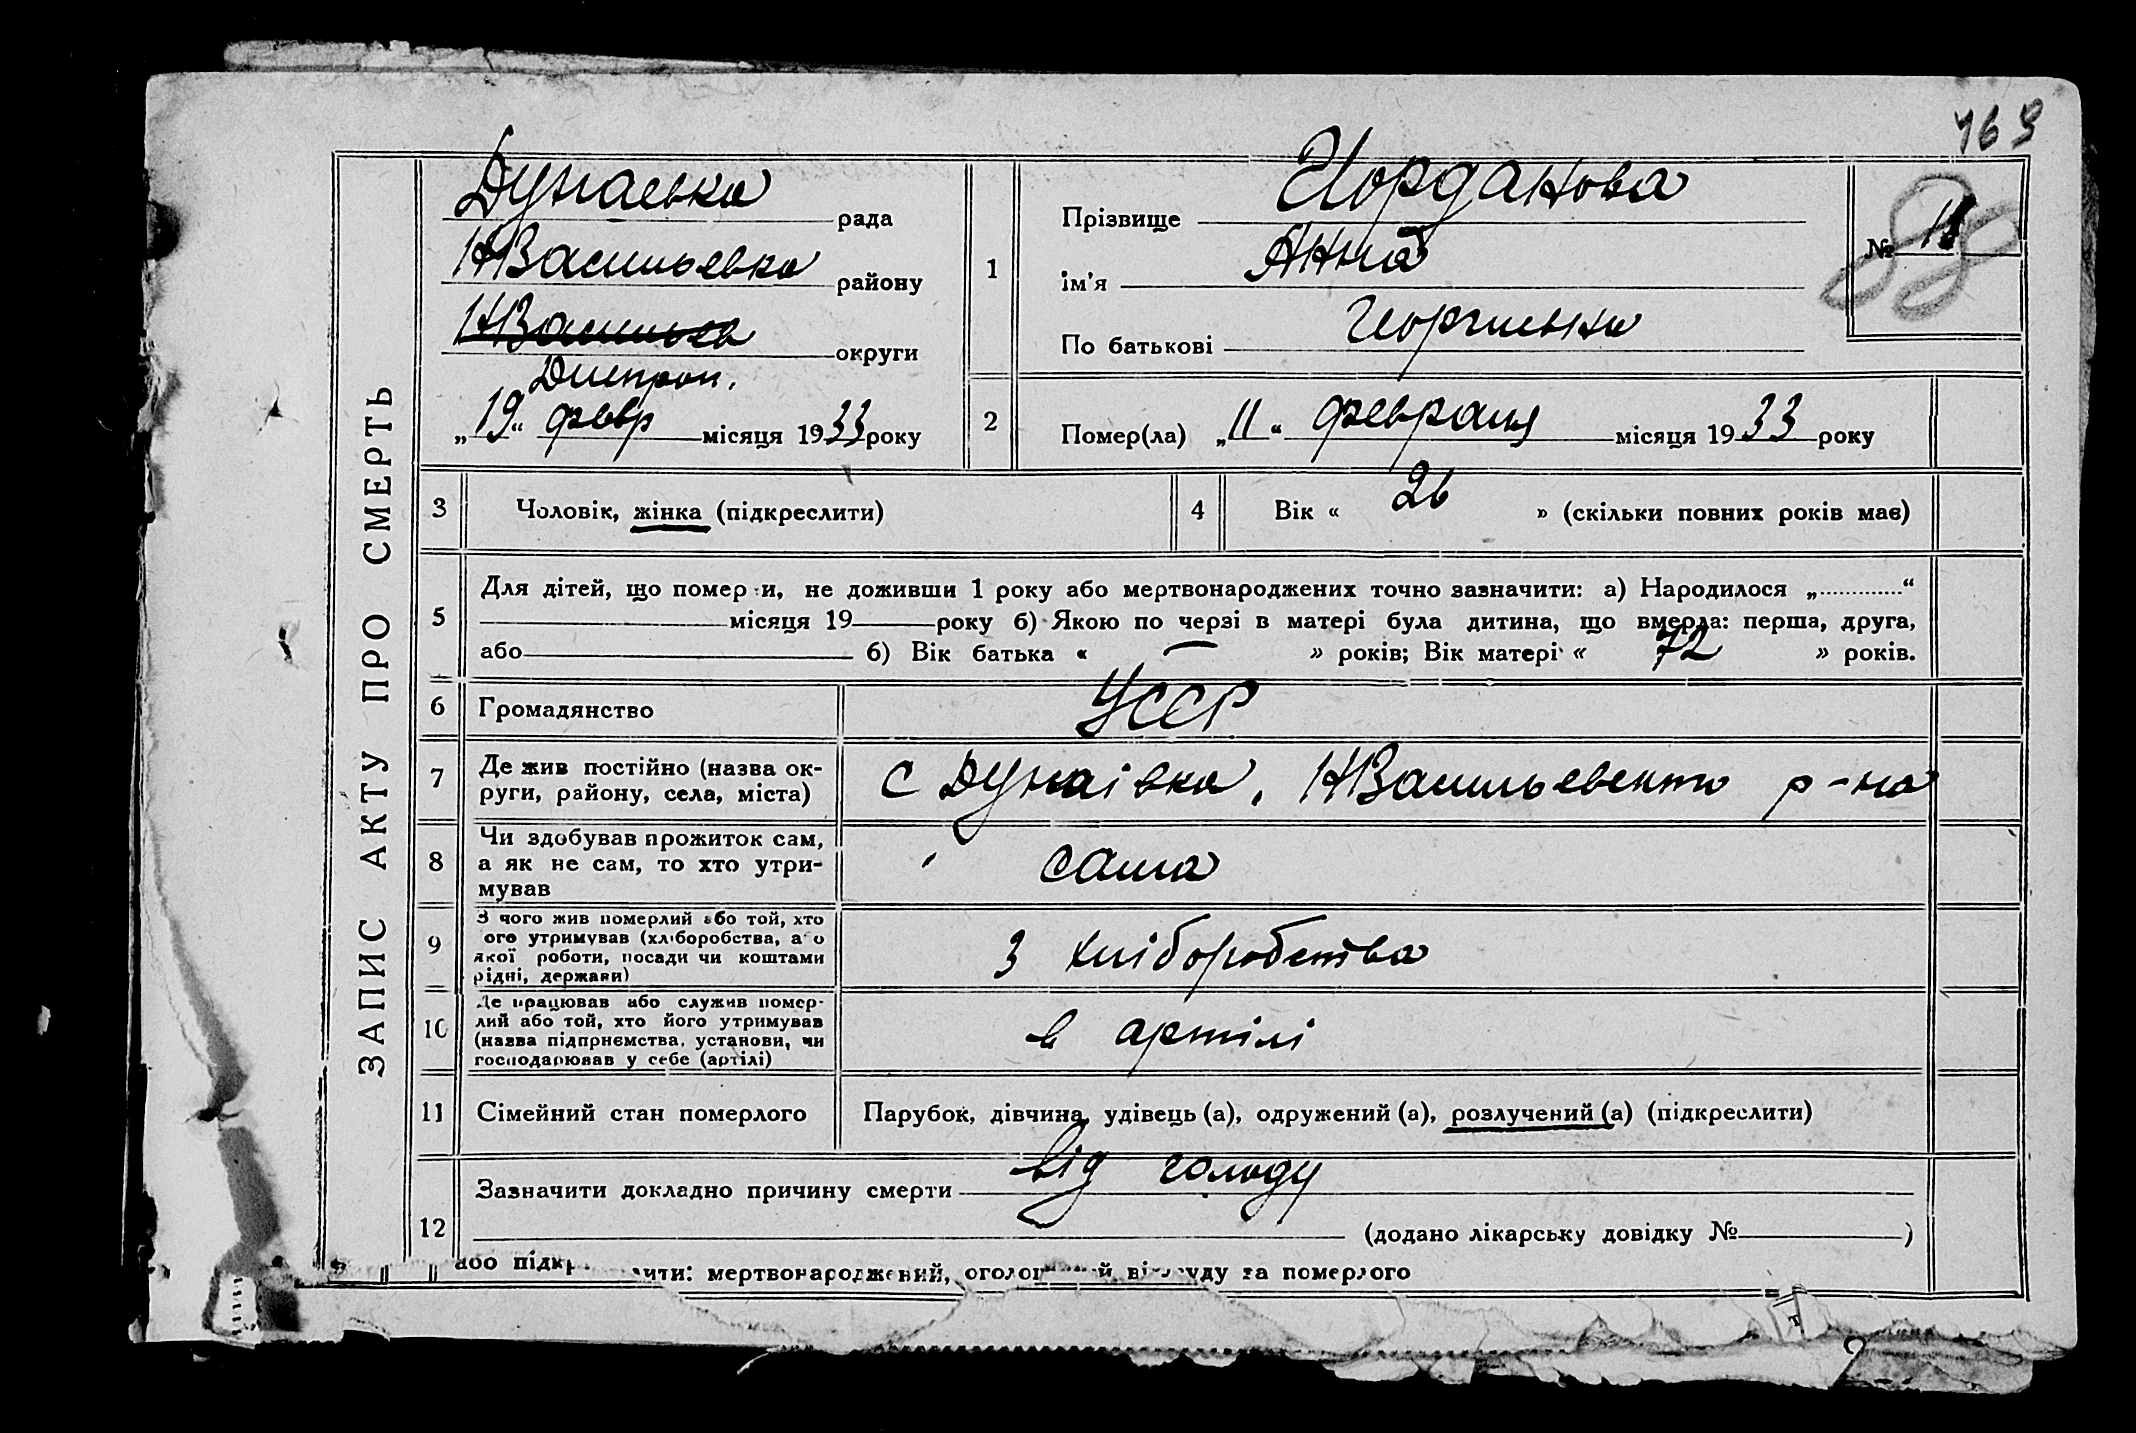 469
ЗАПИС АКТУ ПРО СМЕРТЬ
Дунаевка рада
НВасильевка району
НВасильев округи
Днепроп.
„19“ февр місяця 1933 року
1
Прізвище Иорданова
ім'я Анна
По батькові
№ 11
88
2
Помер(ла) „11“ февраля місяця 1933 року
3 Чоловік, жінка (підкреслити)
4 Вік « 26 » (скільки повних років має)
5
Для дітей, що помер и, не доживши 1 року або мертвонароджених точно зазначити: а) Народилося „ “
місяця 19 року б) Якою по черзі в матері була дитина, що вмерла: перша, друга,
або б) Вік батька « — » років; Вік матері « 72 » років.
6 Громадянство УССР
7 Де жив постійно (назва ок-
руги, району, села, міста)
с Дунаівка, НВасильевскги р-на
8 Чи здобував прожиток сам,
а як не сам, то хто утри-
мував
сама
9 З чого жив померлий або той, хто
ого утримував (хліборобства, а о
якої роботи, посади чи коштами
рідні, держави)
З хліборобства
10 Де працював або служив помер-
лий або той, хто його утримував
(назва підприємства, установи, чи
господарював у себе (артілі)
в артілі
11 Сімейний стан померлого
Парубок, дівчина, удівець (а), одружений (а), розлучений (а) (підкреслити)
12
Зазначити докладно причину смерти від голоду
(додано лікарську довідку № )
або підкр ити: мертвонароджений, оголо й ві уду за померлого